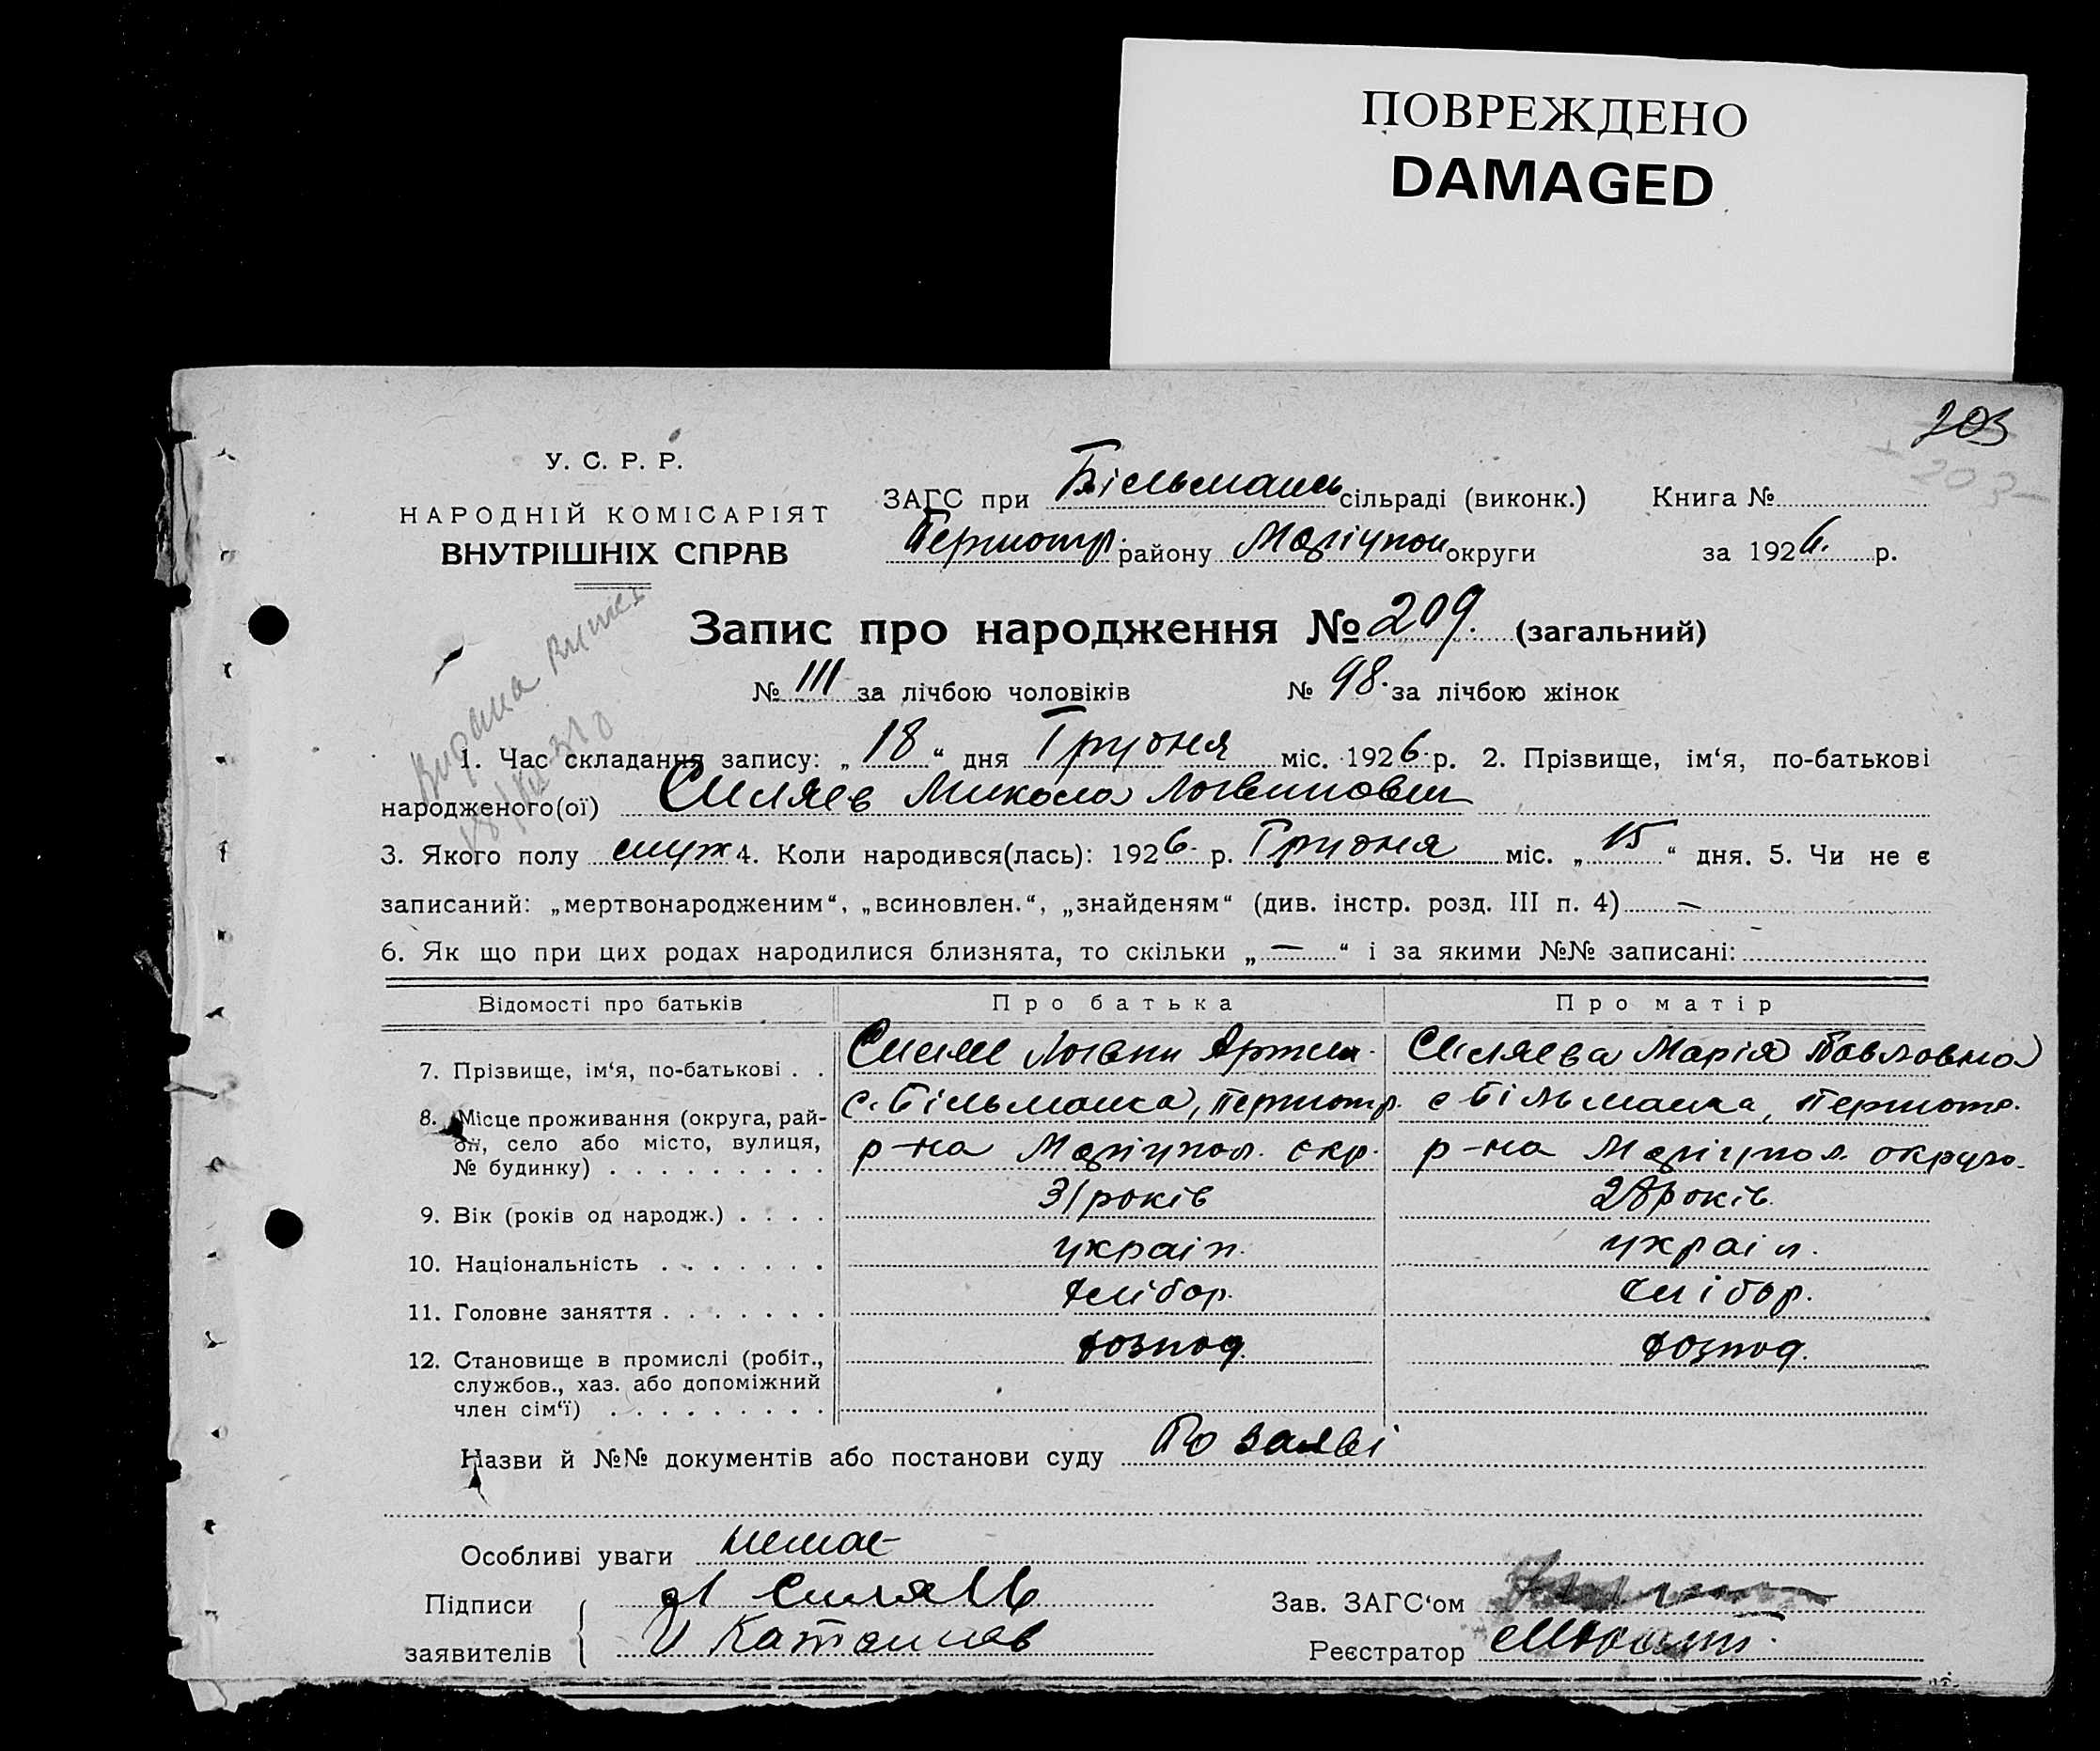 ПОВРЕЖДЕНО
DAMAGED
203
203
У. С. Р. Р.
НАРОДНІЙ КОМІСАРІЯТ
ВНУТРІШНІХ СПРАВ
ЗАГС при Більмансь сільраді (виконк.) Книга №
району Маріупол округи за 1926. р.
Запис про народження № 209. (загальний)
№ 111 за лічбою чоловіків № 98. за лічбою жінок
Видана
1. Час складання запису: „ 18 “ дня Грудня міс. 1926 р. 2. Прізвище, ім‘я, по-батькові
народженого(ої) Силяев Микола Логвинович
3. Якого полу муж 4. Коли народився(лась): 1926 р. Грудня міс. „ 15 “ дня. 5. Чи не є
записаний: „мертвонародженим“, „всиновлен.“, „знайденям“ (див. інстр. розд. III п. 4) —
6. Як що при цих родах народилися близнята, то скільки „ — “ і за якими №№ записані:
Відомості про батьків Про батька Про матір
7. Прізвище, ім‘я, по-батькові . . Логвин Артем. Силяева Марія Павловна
8. Місце проживання (округа, рай- с. Більманка, с Більманка,
он, село або місто, вулиця, р-на Маріупол. окр. р-на Маріупол. округи.
№ будинку) . . . . . . . . .
9. Вік (років од народж.) . . . . 31 років 28 років.
10. Національність . . . . . . . україн. україн.
11. Головне заняття . . . . . . . хлібор. хлібор.
12. Становище в промислі (робіт., господ. господ.
службов., хаз. або допоміжний
член сім‘ї) . . . . . . . . .
Назви й №№ документів або постанови суду По заяві
Особливі уваги немає
Підписи Л Силяев Зав. ЗАГС‘ом
заявителів И Реєстратор